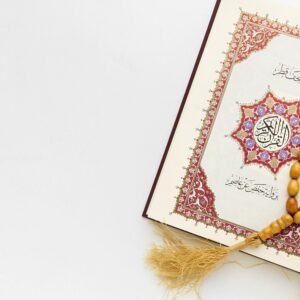 قطر
القرآن الكريم
برواية حفص عن عاصم